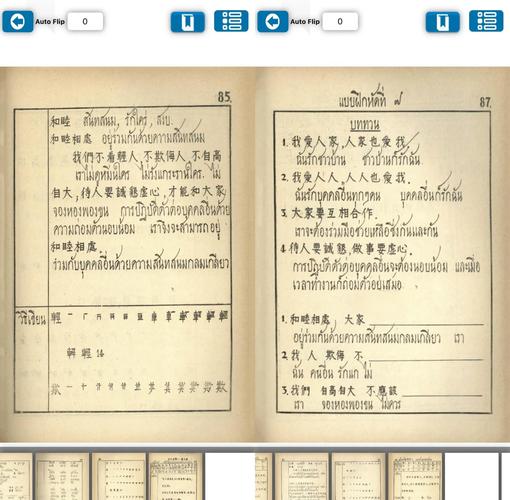 Auto Flip 0
85.
和睦 สนิทสนม, รักใคร่, สงบ.
和睦相處 อยู่ร่วมกันด้วยความสนิทสนม
我們不看輕人,不欺侮人,不自高
เราไม่ดูหมิ่นใคร ไม่รังแกระรานใคร. ไม่
自大,待人要誠懇虛心,才能和大家
จองหองพองขน การปฏิบัติตัวต่อบุคคลอื่นด้วย
ความถ่อมตัวนอบน้อม เราจึงจะสามารถอยู่
和睦相處.
ร่วมกับบุคคลอื่นด้วยความสนิทสนมกลมเกลียว
วิธีเขียน 輕
輕 14
欺
Auto Flip 0
แบบฝึกหัดที่ ๗ 87.
บททวน
1. 我愛人家,人家也愛我.
ฉันรักชาวบ้าน ชาวบ้านก็รักฉัน
2. 我愛人人,人人也愛我.
ฉันรักบุคคลอื่นทุกๆคน บุคคลอื่นก็รักฉัน
3. 大家要互相合作.
เราจะต้องร่วมมือช่วยเหลือซึ่งกันและกัน
4 待人要誠懇,做事要虛心.
การปฏิบัติตัวต่อบุคคลอื่นจะต้องนอบน้อม และเมื่อ
เวลาทำงานก็ถ่อมตัวอยู่เสมอ
1. 和睦相處, 大家
อยู่ร่วมกันด้วยความสนิทสนมกลมเกลียว เรา
2. 我, 人 欺侮 不
ฉัน คนอื่น รังแก ไม่
3. 我們 自高自大 不應該
เรา จองหองพองขน ไม่ควร